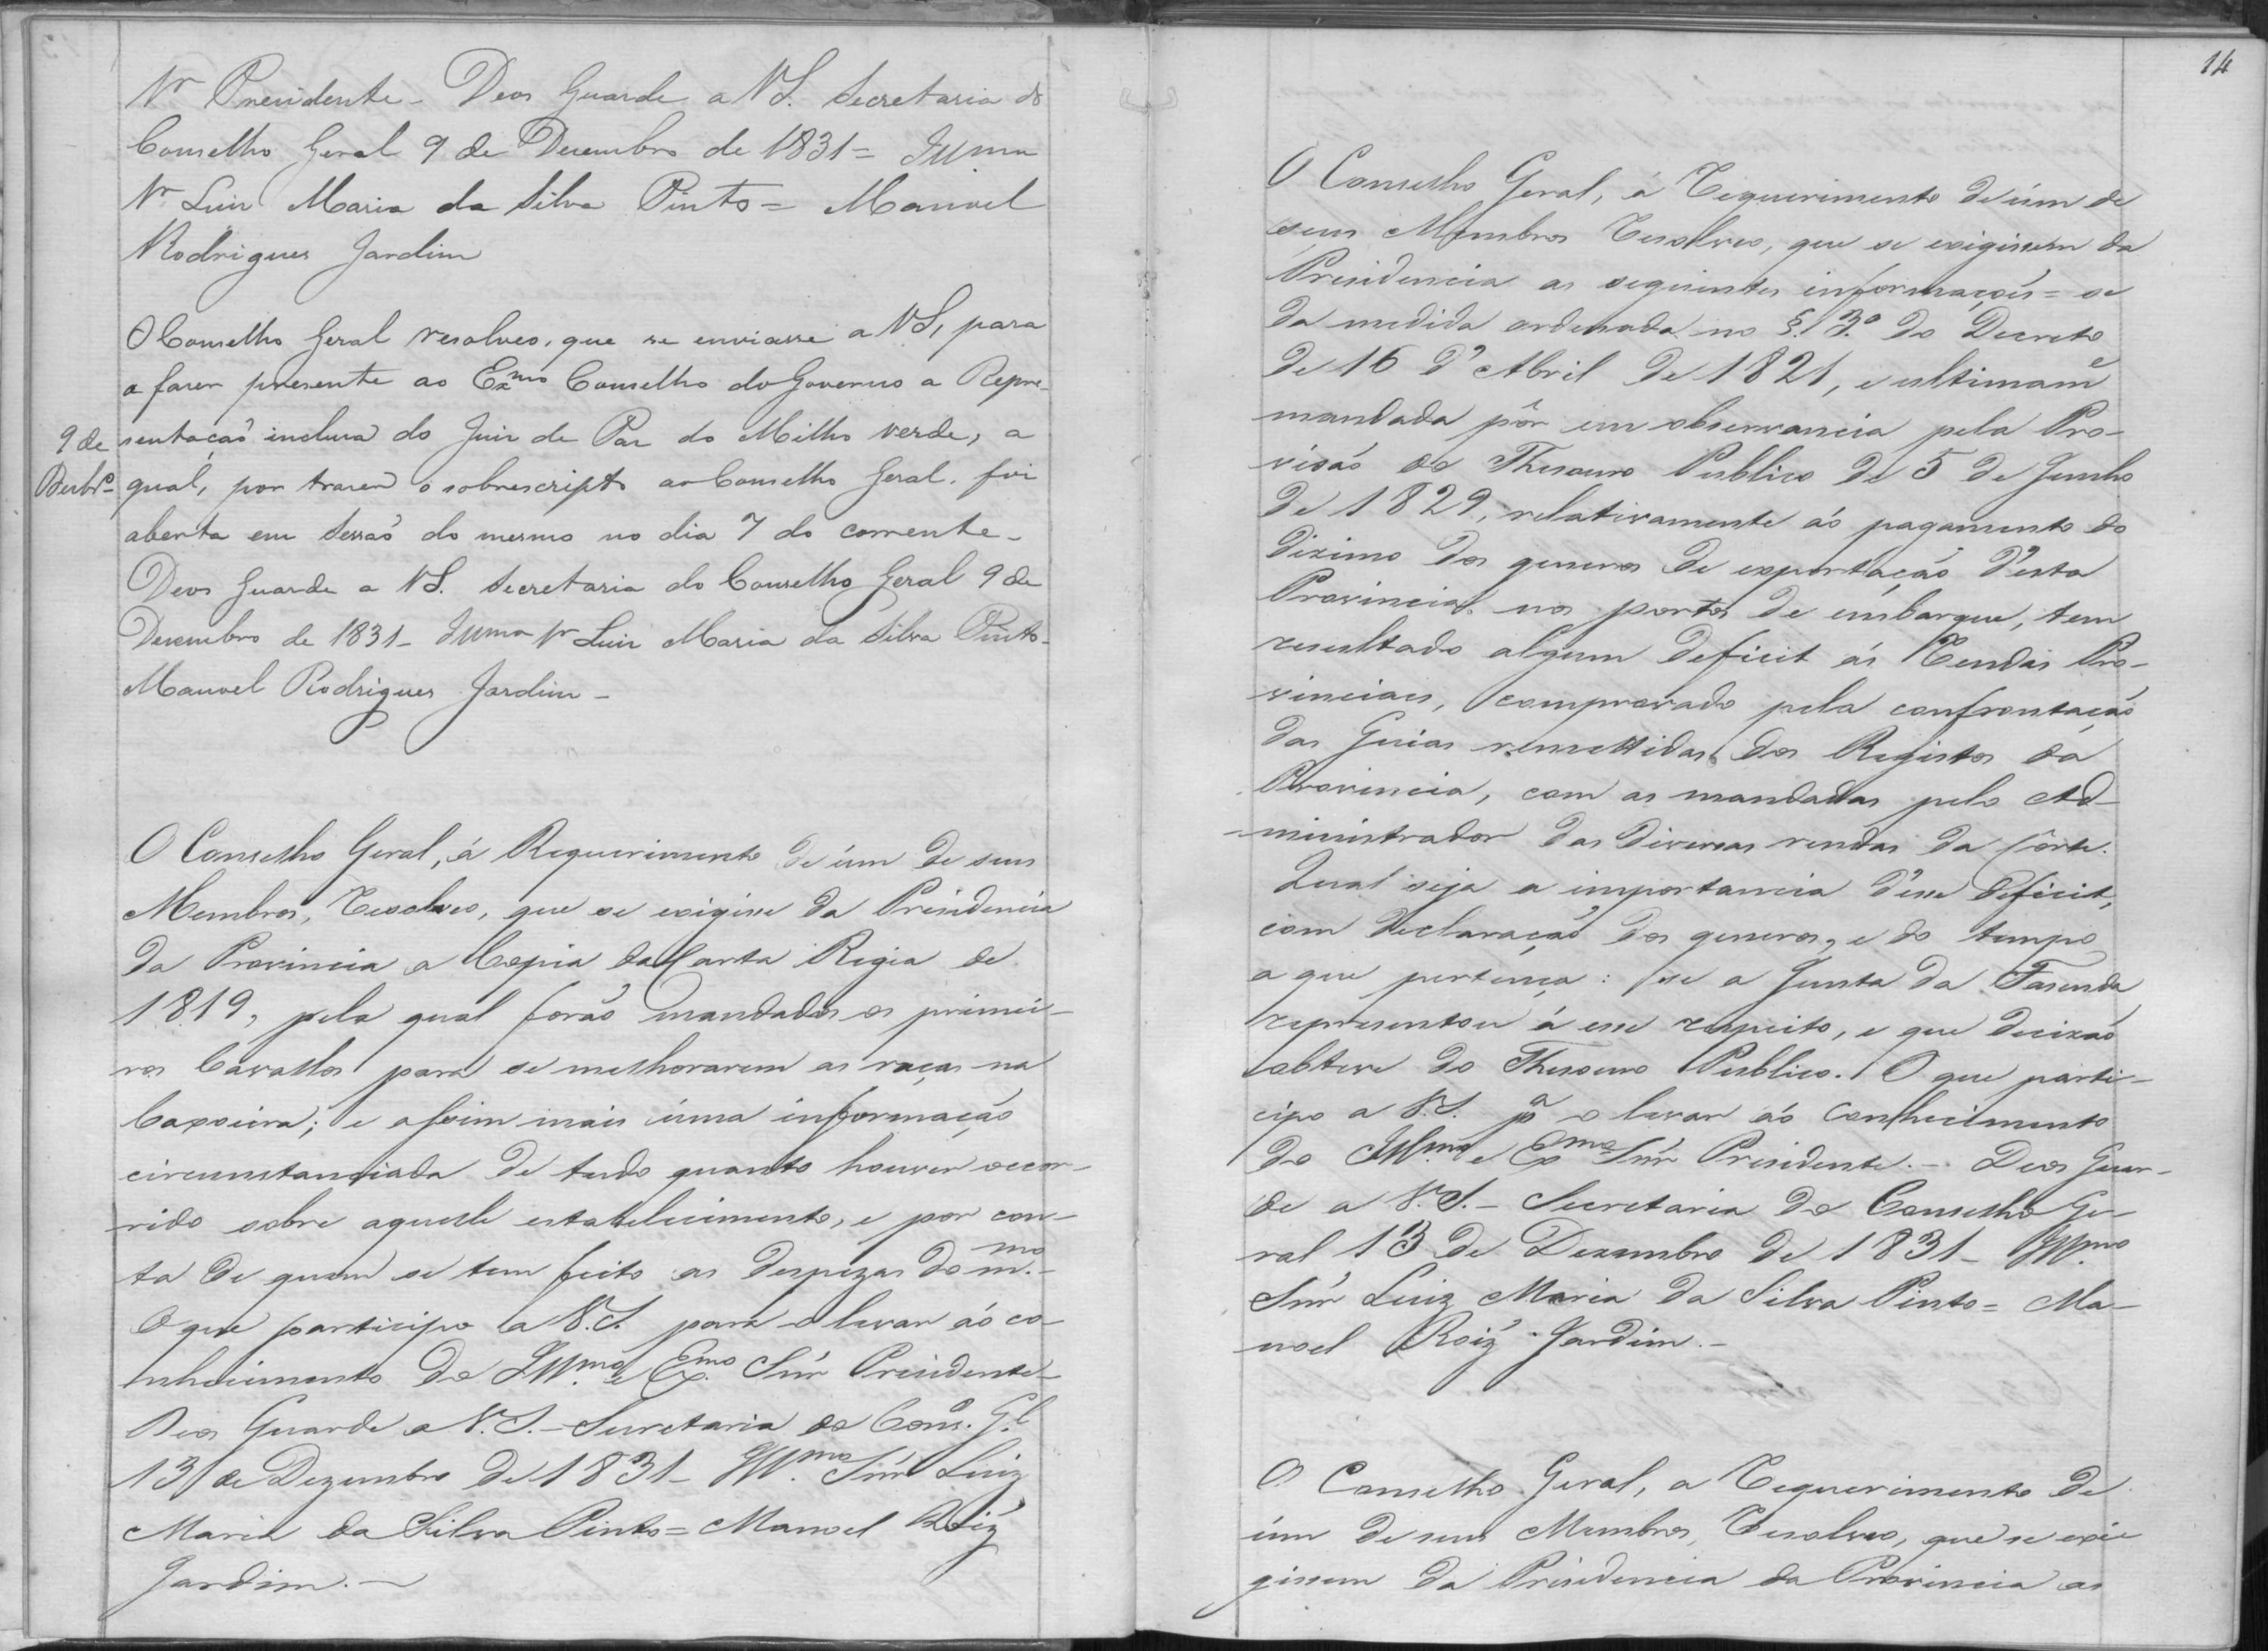 Sr Presidente - Deos Guarde a VS. Secretaria do
Conselho Geral 9 de Desembro de 1831 = Illmo
Sr Luis Maria da Silva Pinto = Manoel
Rodrigues Jardim
O Conselho Geral resolveo, que se enviasse a VS, para
o faser presente ao Exmo Conselho do Governo a Repre-
9 de
Desbro
sentação inclusa do Juis de Pas do Milho verde, a
qual, por traser o sobrescripto ao Conselho Geral, foi
aberta em Sessaõ do mesmo no dia 7 do corrente -
Deos Guarde a VS. Secretaria do Conselho Geral 9 de
Desembro de 1831 - Illmo Sr Luis Maria da Silva Pinto -
Manoel Rodrigues Jardim -
O Conselho Geral, á Requerimento de úm de seus
Membros, Resolveo, que se exigisse da Presidencia
da Provincia a Copia da Carta Regia de
1819, pela qual foraõ mandados os primei-
ros Cavallos para se melhorarem as raças na
Caxoeira; e assim mais úma informação
circumstanciada de tudo quanto houver occor-
rido sobre aquelle estabelecimento, e por con-
ta de quem se tem feito as despezas do m.mo -
O que participo a V.S. para o levar áo co-
nhecimento do Ill.mo e Ex.mo Snr Presidente -
Deos Guarde a V.S. - Secretaria do Cons.o G.l
13 de Dezembro de 1831 - Ill.mo Snr Luiz
Maria da Silva Pinto = Manoel Roiz
Jardim. -
14
O Conselho Geral, á Requerimento de úm de
seus Membros Resolveo, que se exigissem da
Presidencia as seguintes informaçoẽs = se
da medida ordenada no §. 3.º do Decreto
de 16 d'Abril de 1821, e ultimamẽ
mandada pôr em observancia pela Pro-
visaõ do Thesouro Publico de 5 de Junho
de 1829, relativamente áo pagamento do
dizimo dos generos de exportação d'esta
Provincia nos portos de embarque, tem
resultado algum deficit ás Rendas Pro-
vinciaes, comprovado pela confrontação
das Guias remettidas dos Registos da
Provincia, com as mandadas pelo Ad-
ministrador das diversas rendas da Côrte.
Qual seja a importancia d'esse deficit,
com declaraçaõ dos generos, e do tempo
a que pertença: se a Junta da Fasenda
representou á esse respeito, e que decizaõ
obteve do Thesouro Publico. O que parti-
cipo a V.S. pa o levar áo conhecimento
do Illmo e Exmo Snr Presidente. - Deos Guar-
de a V.S. - Secretaria do Conselho Ge-
ral 13 de Dezembro de 1831 - Ill.mo
Snr Luiz Maria da Silva Pinto = Ma-
noel Roiz Jardim. -
O Conselho Geral, a Requerimento de
úm de seus Membros, Resolveo, que se exi-
gissem da Presidencia da Provincia as